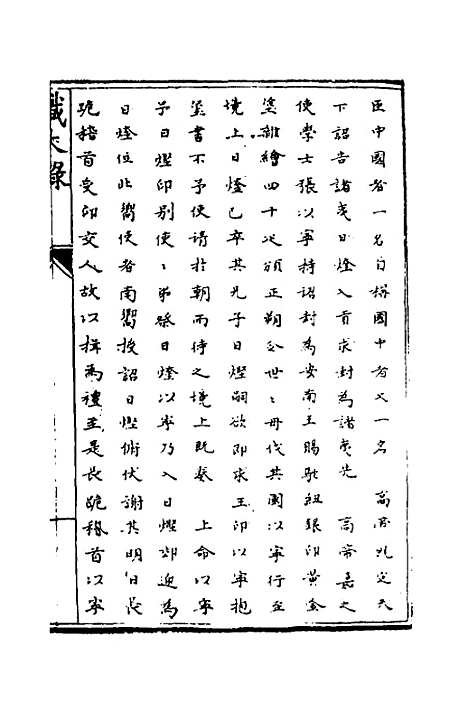 臣中國者一名自稱國中者又一名　高帝既定天
下詔告諸夷日煃入貢求封為諸夷先　高帝嘉之
使學士張以寧持詔封為安南王賜駞紐銀印黃金
塗雜繪四十疋頒正朔令世〻毋伐其國以寧行至
境上日煃已卒其兄子日熞嗣欲即求王印以寧抱
璽書不予使請於朝而待之境上既奏　上命以寧
予日熞印別使〻弔祭日煃以寧乃入日熞郊迎為
日煃位北嚮使者南嚮授詔日熞俯伏謝其明日長
跪稽首受印交人故以揖為禮至是長跪稽首以寧
識大錄